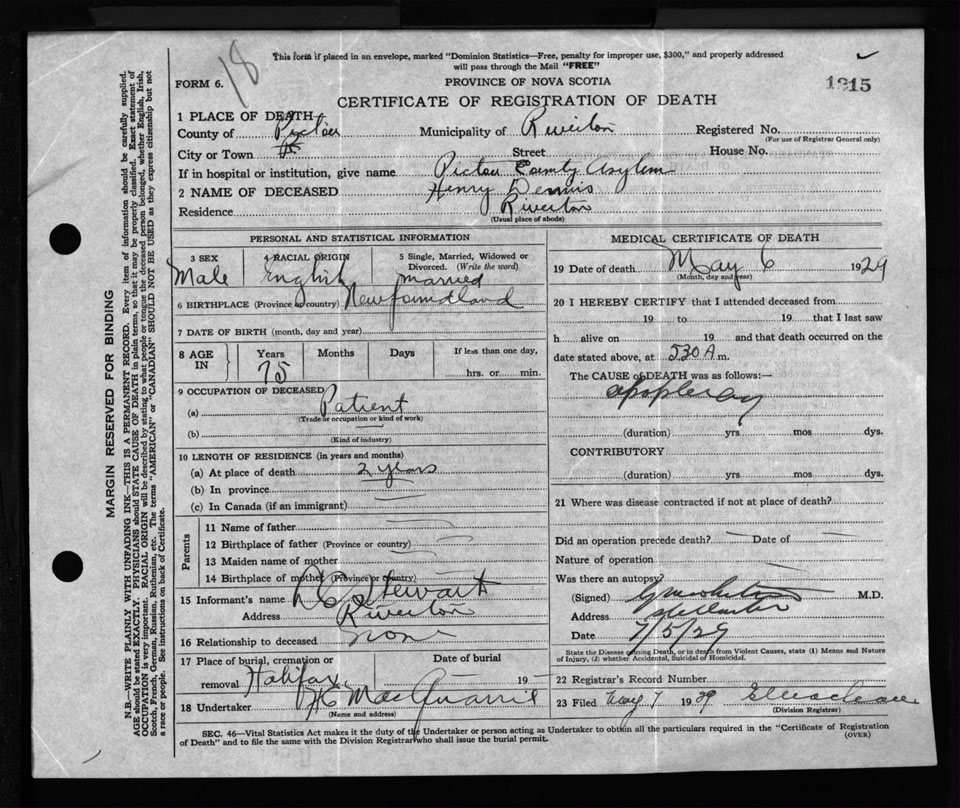 This form if placed in an envelope, marked "Dominion Statistics—Free, penalty for improper use, $300," and properly addressed
will pass through the Mail "FREE"
18
1215
FORM 6.
PROVINCE OF NOVA SCOTIA
CERTIFICATE OF REGISTRATION OF DEATH
1 PLACE OF DEATH
County of Pictou Municipality of Riverton Registered No.
(For use of Registrar General only)
City or Town Street House No.
If in hospital or institution, give name Pictou County Asylum
2 NAME OF DECEASED Henry Dennis
Residence Riverton
(Usual place of abode)
PERSONAL AND STATISTICAL INFORMATION
3 SEX Male
4 RACIAL ORIGIN English
5 Single, Married, Widowed or Divorced. (Write the word) married
6 BIRTHPLACE (Province or country) Newfoundland
7 DATE OF BIRTH (month, day and year)
8 AGE IN Years 75 Months Days If less than one day, hrs. or min.
9 OCCUPATION OF DECEASED
(a) Patient
(Trade or occupation or kind of work)
(b)
(Kind of industry)
10 LENGTH OF RESIDENCE (in years and months)
(a) At place of death 2 years
(b) In province
(c) In Canada (if an immigrant)
Parents
11 Name of father
12 Birthplace of father (Province or country)
13 Maiden name of mother
14 Birthplace of mother (Province or country)
15 Informant's name Stewart
Address Riverton
16 Relationship to deceased none
17 Place of burial, cremation or removal Halifax
Date of burial 19
18 Undertaker MacQuarrie
(Name and address)
MEDICAL CERTIFICATE OF DEATH
19 Date of death May 6 1929
(Month, day and year)
20 I HEREBY CERTIFY that I attended deceased from
19 to 19 that I last saw
h alive on 19 and that death occurred on
date stated above, at 5.30 A m.
The CAUSE of DEATH was as follows:—
apoplexy
(duration) yrs mos dys.
CONTRIBUTORY
(duration) yrs mos dys.
21 Where was disease contracted if not at place of death?
Did an operation precede death? Date of
Nature of operation
Was there an autopsy?
(Signed) M.D.
Address Stellarton
Date 7/5/29
State the Disease causing Death, or in death from Violent Causes, state (1) Means and Nature
of Injury, (2) whether Accidental, Suicidal or Homicidal.
22 Registrar's Record Number
23 Filed May 7 1929
(Division Registrar)
SEC. 46—Vital Statistics Act makes it the duty of the Undertaker or person acting as Undertaker to obtain all the particulars required in the "Certificate of Registration
of Death" and to file the same with the Division Registrar who shall issue the burial permit.
(OVER)
MARGIN RESERVED FOR BINDING
N.B.—WRITE PLAINLY WITH UNFADING INK—THIS IS A PERMANENT RECORD. Every item of information should be carefully supplied.
AGE should be stated EXACTLY. PHYSICIANS should STATE CAUSE OF DEATH in plain terms, so that it may be properly classified. Exact statement of
OCCUPATION is very important. RACIAL ORIGIN will be described by stating to what people or tongue the deceased person belonged, whether English, Irish,
Scotch, French, German, Russian, Ruthenian, etc. The terms "AMERICAN" or "CANADIAN" SHOULD NOT BE USED as they express citizenship but not
a race or people. See instructions on back of Certificate.